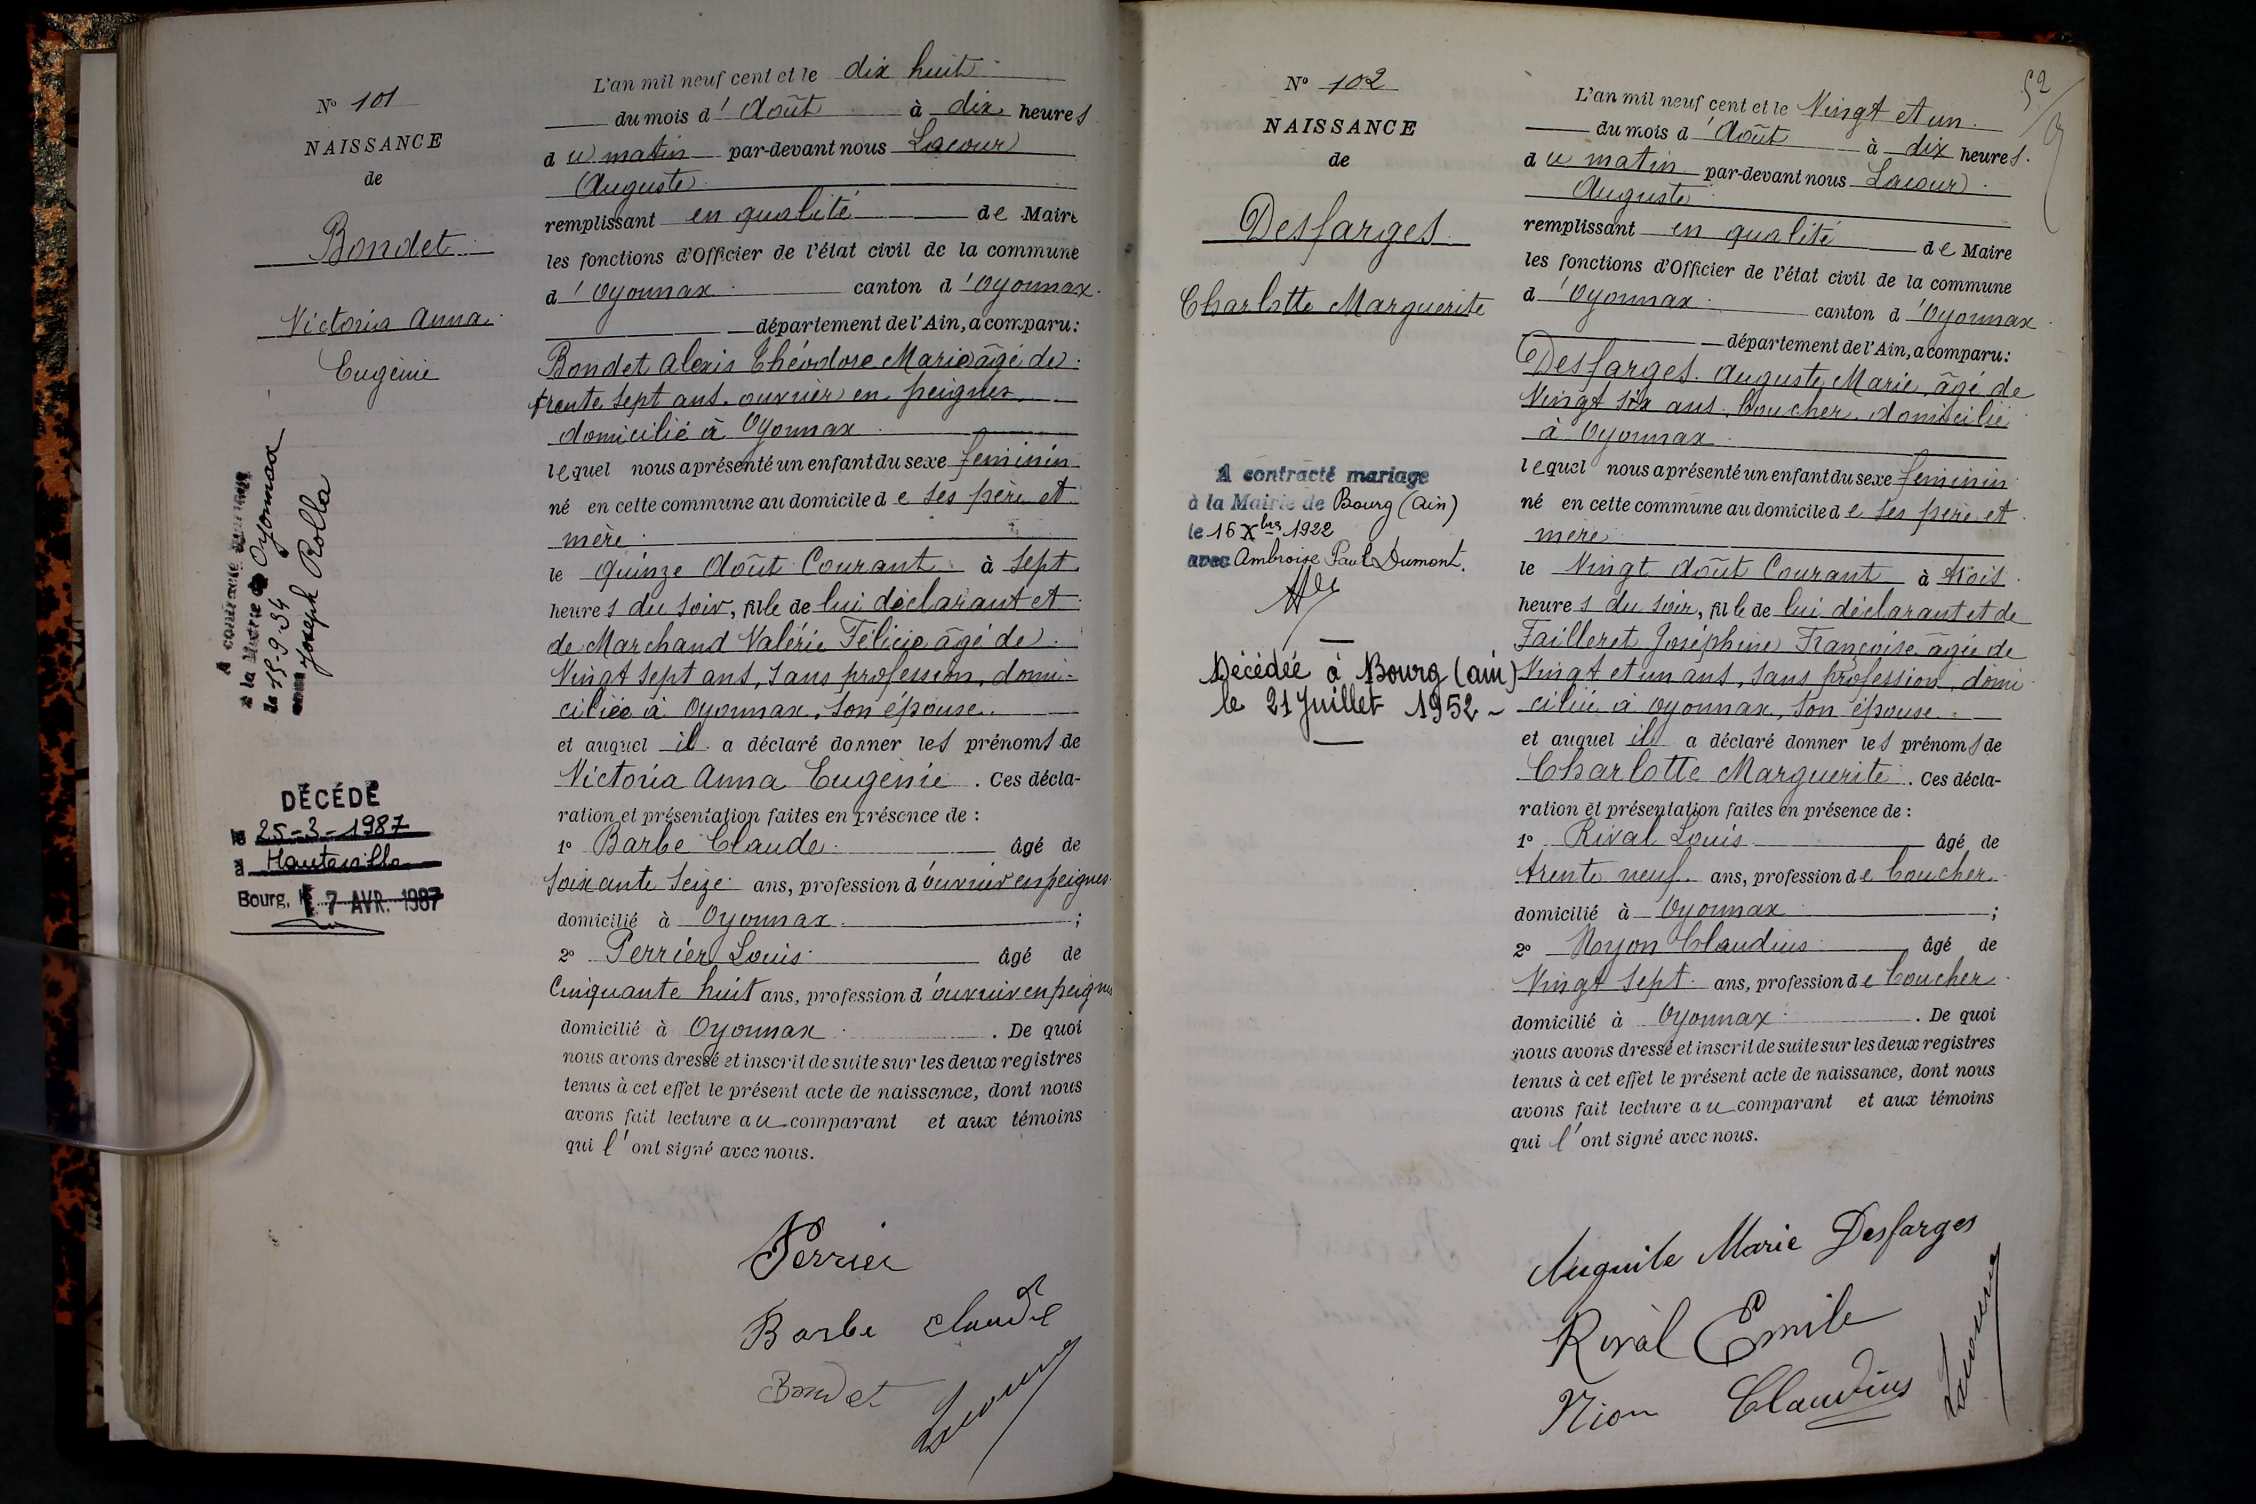 N° 101
NAISSANCE
de
Bondet
Victoria Anna
Eugénie
A contracté mariage
à la Mairie de Oyonnax
le 15-9-34
avec Joseph Rolla
DÉCÉDÉ
le 25-3-1987
à Hauteville
Bourg, le 7 AVR. 1987
L'an mil neuf cent et le dix huit
du mois d'Août à dix heures
du matin par-devant nous Lacour
Auguste
remplissant en qualité de Maire
les fonctions d'Officier de l'état civil de la commune
d'Oyonnax canton d'Oyonnax
département de l'Ain, a comparu:
Bondet Alexis Théodore Marie âgé de
trente sept ans. ouvrier en peignes
domicilié à Oyonnax
lequel nous a présenté un enfant du sexe feminin
né en cette commune au domicile de ses père et
mère
le quinze Août Courant à sept
heures du soir, fille de lui déclarant et
de Marchand Valérie Félicie âgé de
Vingt sept ans, sans profession, domi-
ciliée à Oyonnax, son épouse.
et auquel il a déclaré donner les prénoms de
Victoria Anna Eugénie. Ces décla-
ration et présentation faites en présence de :
1° Barbe Claude âgé de
soixante seize ans, profession d'ouvrier en peignes
domicilié à Oyonnax ;
2° Perrier Louis âgé de
Cinquante huit ans, profession d'ouvrier en peignes
domicilié à Oyonnax. De quoi
nous avons dressé et inscrit de suite sur les deux registres
tenus à cet effet le présent acte de naissance, dont nous
avons fait lecture au comparant et aux témoins
qui l'ont signé avec nous.
Perrier
Barbe Claude
Bondet
Lacour
52
N° 102
NAISSANCE
de
Desfarges
Charlotte Marguerite
A contracté mariage
à la Mairie de Bourg (Ain)
le 16 Xbre 1922
avec Ambroise Paul Dumont.
Décédée à Bourg (ain)
le 21 Juillet 1952 -
L'an mil neuf cent et le Vingt et un
du mois d'Août à dix heures
du matin par-devant nous Lacour
Auguste
remplissant en qualité de Maire
les fonctions d'Officier de l'état civil de la commune
d'Oyonnax canton d'Oyonnax
département de l'Ain, a comparu:
Desfarges. Auguste Marie, âgé de
Vingt six ans. boucher. domicilié
à Oyonnax
lequel nous a présenté un enfant du sexe feminin
né en cette commune au domicile de ses père et
mère
le Vingt Août Courant à trois
heures du soir, fille de lui déclarant et de
Failleret Joséphine Françoise âgée de
Vingt et un ans, sans profession, domi
ciliée à Oyonnax, son épouse
et auquel il a déclaré donner les prénoms de
Charlotte Marguerite. Ces décla-
ration et présentation faites en présence de :
1° Rival Louis âgé de
trente neuf ans, profession de boucher
domicilié à Oyonnax ;
2° Nyon Claudius âgé de
Vingt sept ans, profession de boucher
domicilié à Oyonnax. De quoi
nous avons dressé et inscrit de suite sur les deux registres
tenus à cet effet le présent acte de naissance, dont nous
avons fait lecture au comparant et aux témoins
qui l'ont signé avec nous.
Auguste Marie Desfarges
Rival Emile
Nion Claudius
Lacour